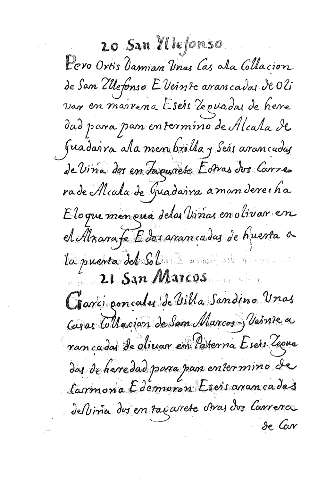 20 San Yllefonso
Pero Ortis Damian Unas Cas ala Collacion
de San Yllefonso E Veinte arancadas de Oli
var en mairena E seis Yeguadas de here
dad para pan en termino de Alcala de
Guadaira ala membrilla y Seis arancadas
de Viña dos en Tagarete E otras dos Carre
ra de Alcala de Guadaira a man derecha
E lo que mengua de las Viñas en olivar en
el Alxarafe E dos arrancadas de huerta a
la puerta del Sol
21 San Marcos
Garci gonzales de Villa Sandino Unas
Casas Collacion de San Marcos y Veinte a
rancadas de olivar en Paterna E seis Yegua
das de heredad para pan en termino de
Carmona E de moron E seis arancadas
de Viña dos en tagarete otras dos Carrera
de Car